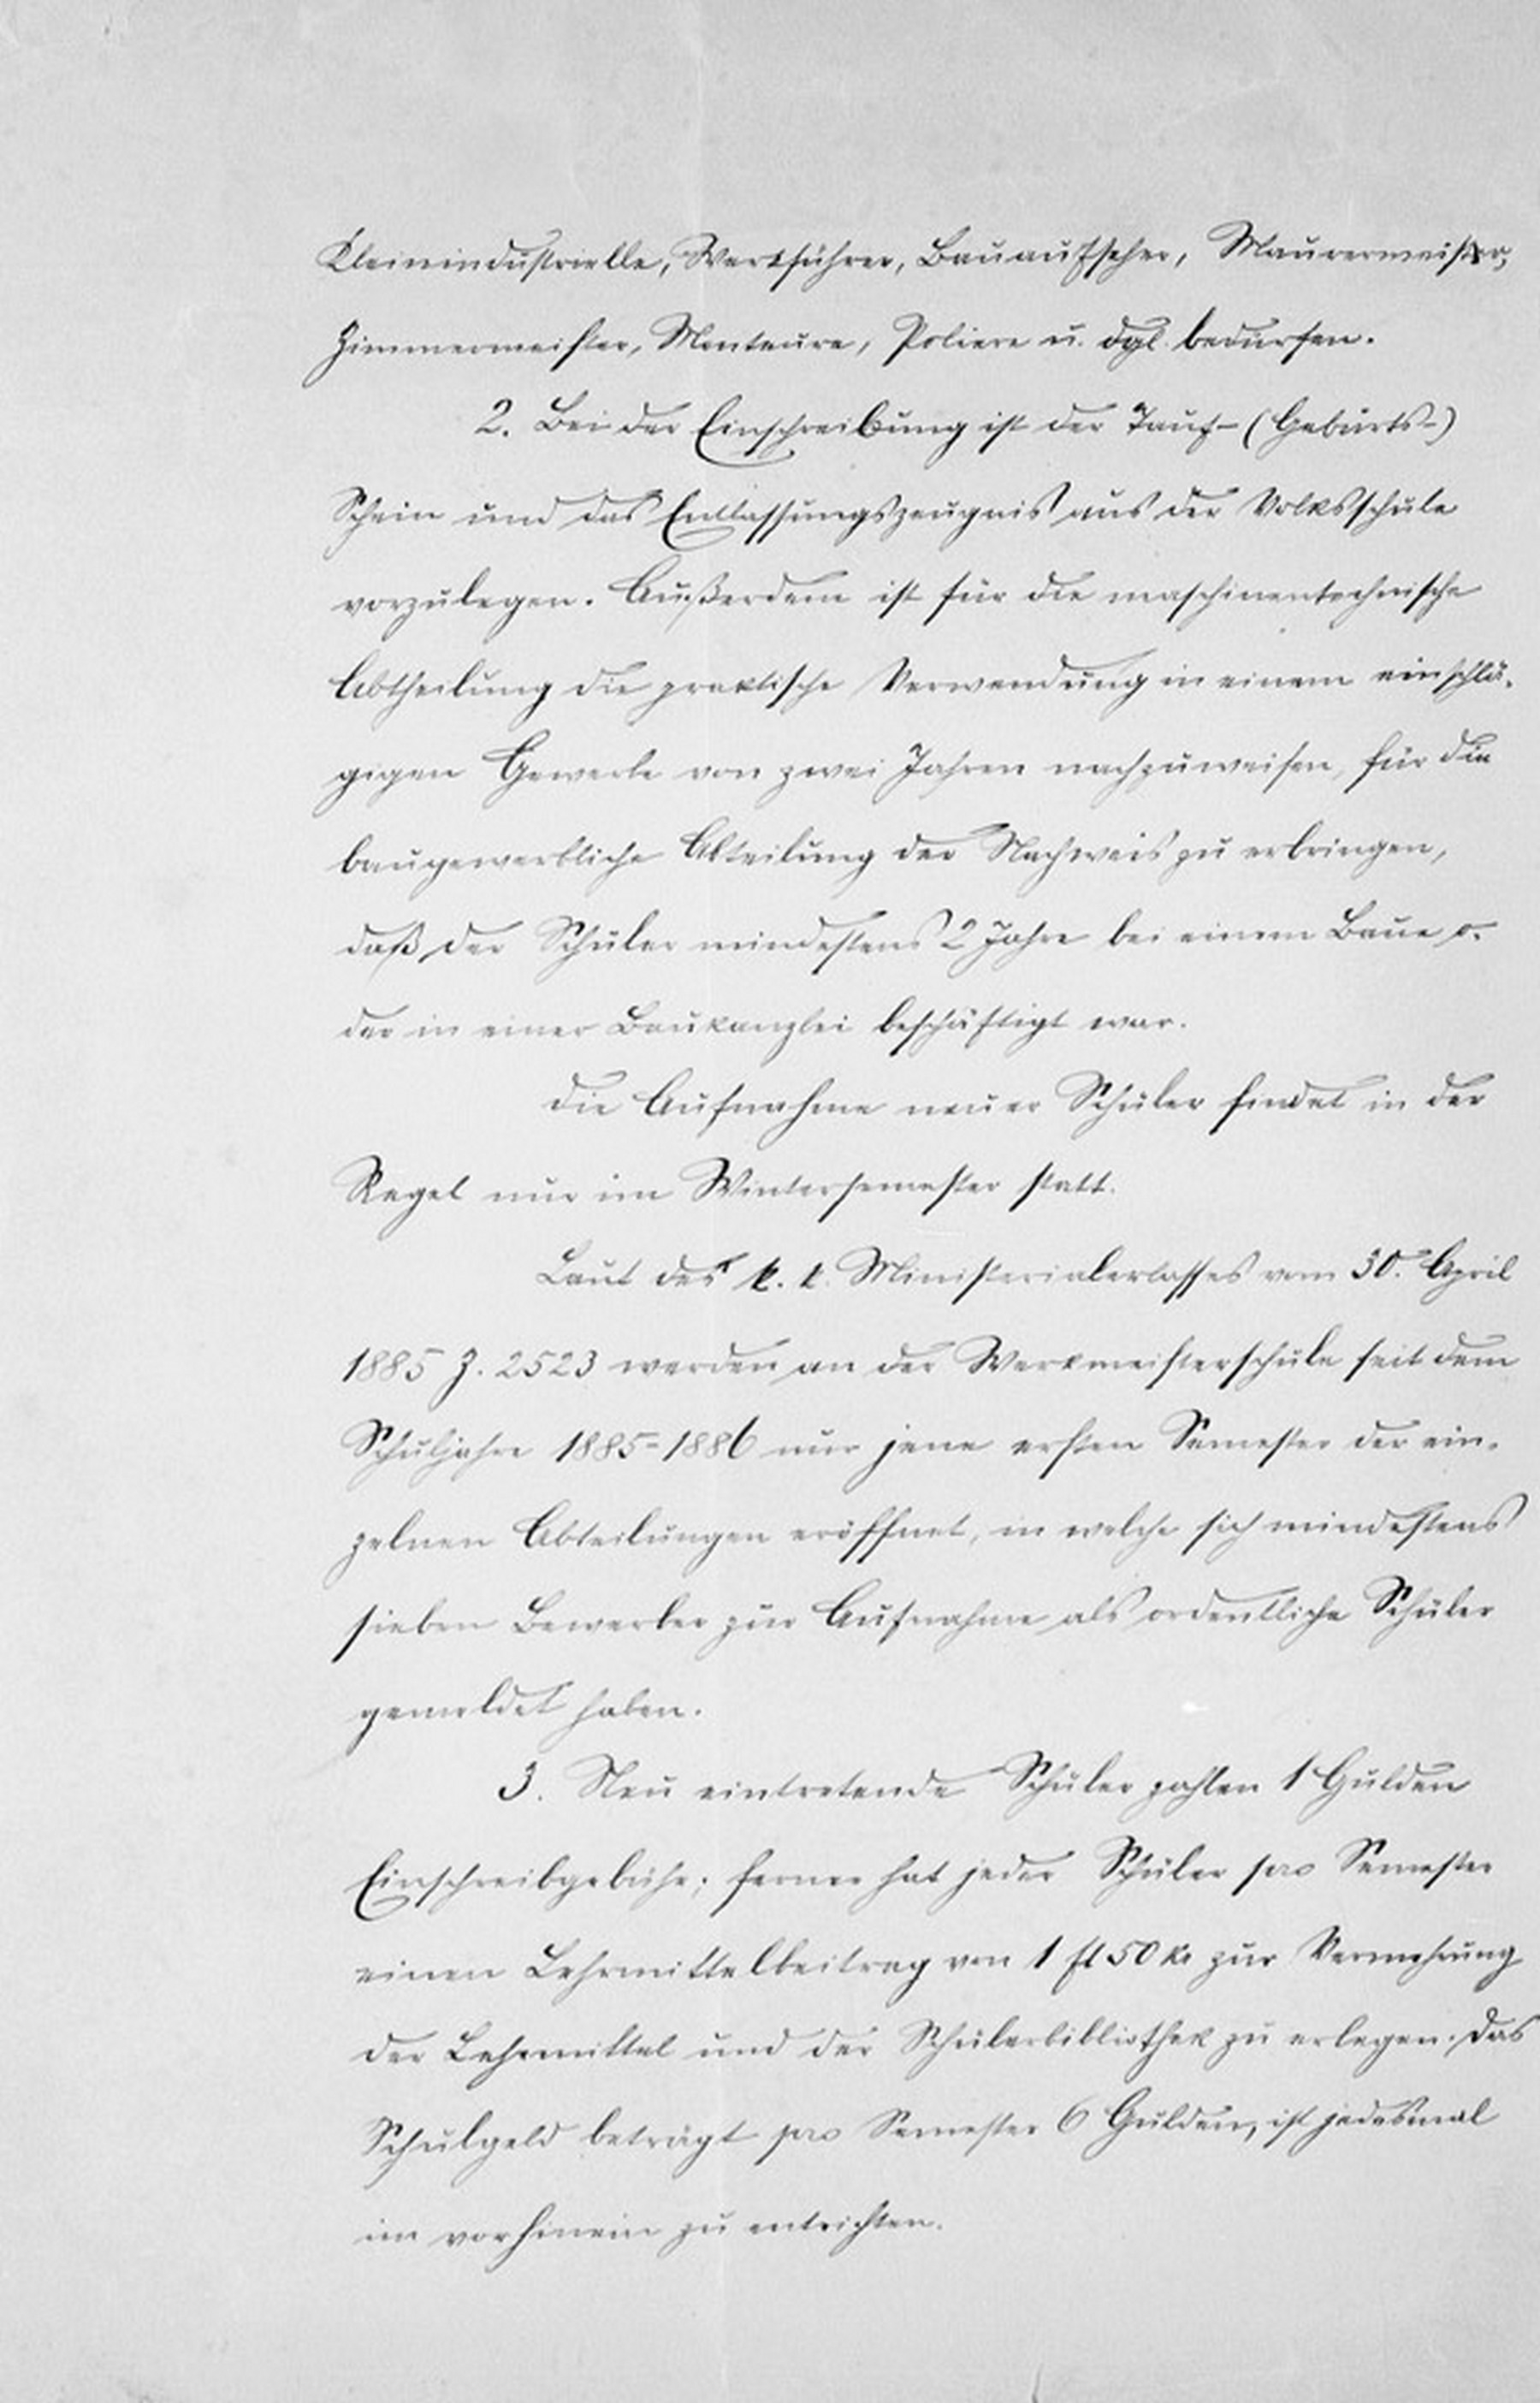 Kleinindustrielle, Werkführer, Bauaufseher, Maurermeister,
Zimmermeister, Monteure, Poliere u. dgl. bedürfen.
2. Bei der Einschreibung ist der Tauf- (Geburts-)
Schein und das Entlassungszeugnis aus der Volksschule
vorzulegen. Außerdem ist für die maschinentechnische
Abtheilung die praktische Verwendung in einem einschlä-
gigen Gewerbe von zwei Jahren nachzuweisen, für die
baugewerbliche Abteilung der Nachweis zu erbringen,
daß der Schüler mindestens 2 Jahre bei einem Baue o-
der in einer Baukanzlei beschäftigt war.
Die Aufnahme neuer Schüler findet in der
Regel nur im Wintersemester statt.
Laut des k. k. Ministerialerlasses vom 30. April
1885 Z. 2523 werden an der Werkmeisterschule seit dem
Schuljahre 1885-1886 nur jene ersten Semester der ein-
zelnen Abteilungen eröffnet, in welche sich mindestens
sieben Bewerber zur Aufnahme als ordentliche Schüler
gemeldet haben.
3. Neu eintretende Schüler zahlen 1 Gulden
Einschreibgebühr; ferner hat jeder Schüler pro Semester
einen Lehrmittelbeitrag von 1 fl 50 kr zur Vermehrung
der Lehrmittel und der Schülerbibliothek zu erlegen. Das
Schulgeld beträgt pro Semester 6 Gulden, ist jedesmal
im vorhinein zu entrichten.